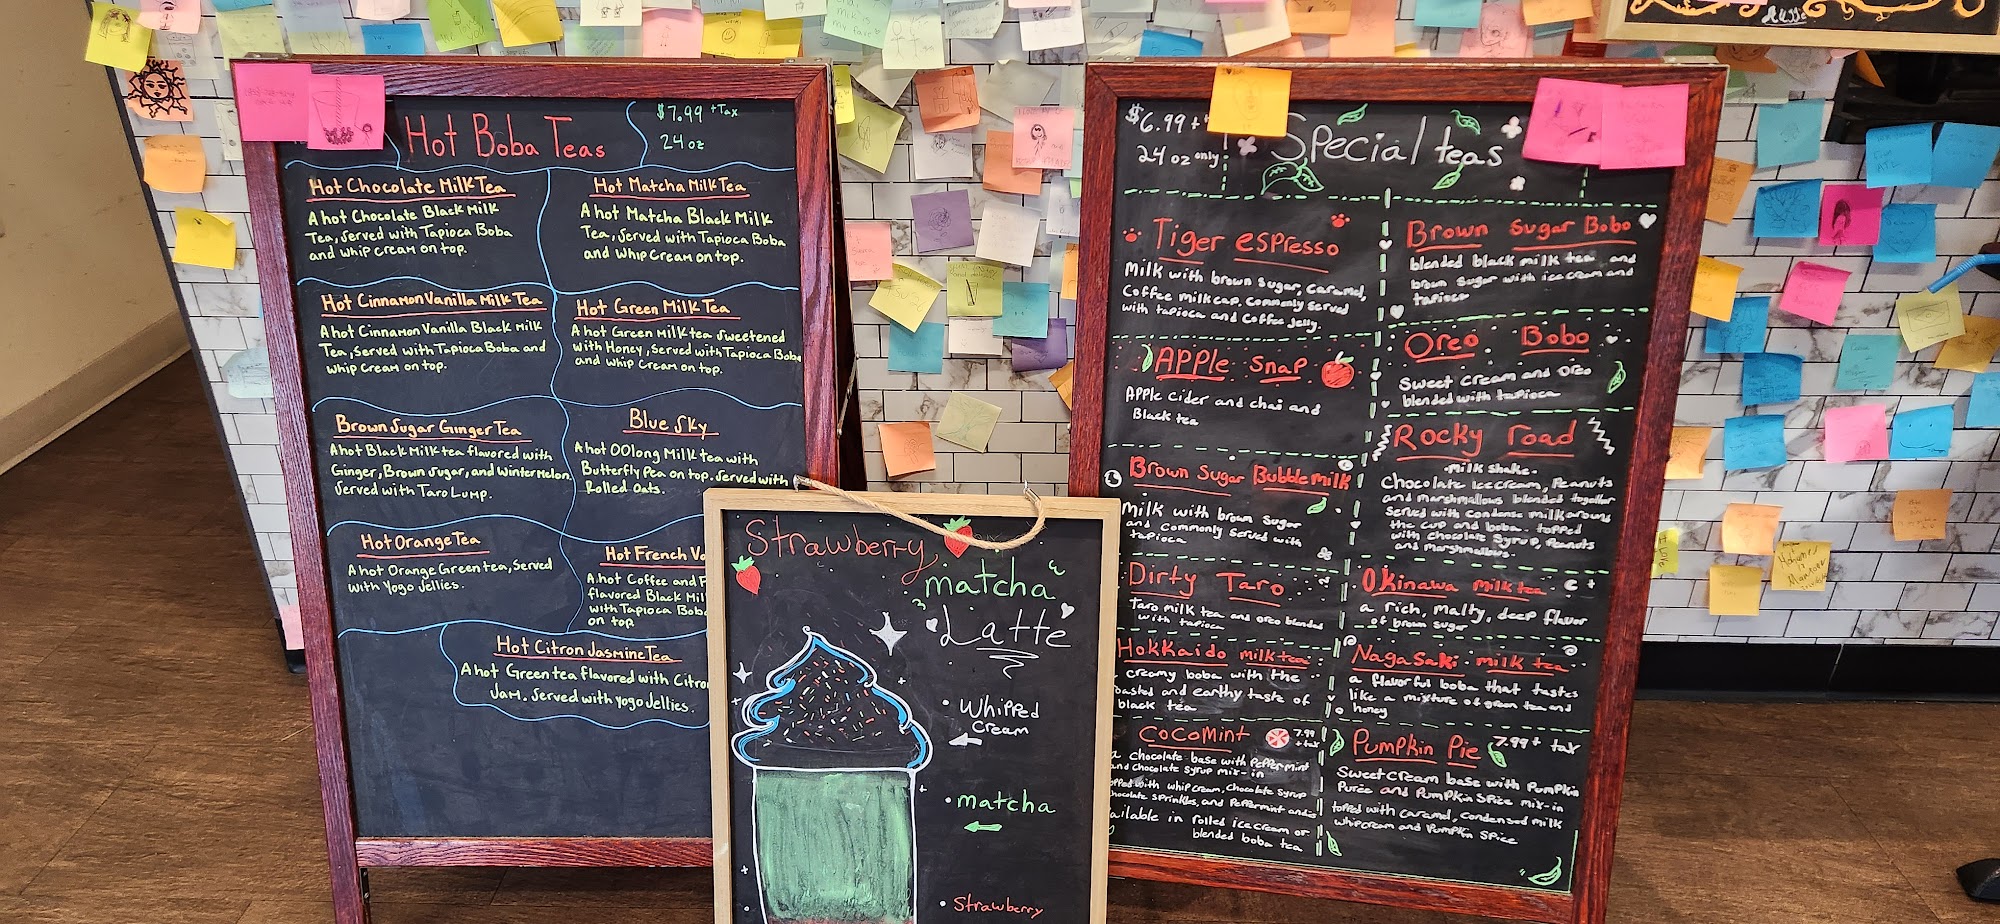 Hot Boba Teas
$7.99 + Tax
24 oz
Hot Chocolate Milk Tea
A hot Chocolate Black Milk
Tea, Served with Tapioca Boba
and whip cream on top.
Hot Matcha Milk Tea
A hot Matcha Black Milk
Tea, Served with Tapioca Boba
and whip Cream on top.
Hot Cinnamon Vanilla Milk Tea
A hot Cinnamon Vanilla Black Milk
Tea, Served with Tapioca Boba and
whip Cream on top.
Hot Green Milk Tea
A hot Green Milk tea Sweetened
with Honey, Served with Tapioca Boba
and whip Cream on top.
Brown Sugar Ginger Tea
A hot Black Milk tea flavored with
Ginger, Brown Sugar, and Winter Melon.
Served with Taro Lump.
Blue Sky
A hot OOlong Milk tea with
Butterfly Pea on top. Served with
Rolled Oats.
Hot Orange Tea
A hot Orange Green tea, Served
with Yogo Jellies.
Hot French
A hot Coffee and
flavored Black
with Tapioca Boba
on top
Hot Citron Jasmine Tea
A hot Green tea flavored with
Jam. Served with Yogo Jellies.
Strawberry
matcha
Latte
• Whipped
Cream
• matcha
• Strawberry
$6.99 +
24 oz only
Special teas
Tiger espresso
Milk with brown sugar, caramel,
Coffee milk cap, commonly served
with tapioca and Coffee Jelly.
Apple Snap
Apple cider and chai and
Black tea
Brown Sugar Bubble milk
Milk with brown sugar
and commonly served with
tapioca
Dirty Taro
Taro milk tea and oreo blended
with tapioca
Hokkaido milk tea
creamy boba with the
and earthy taste of
black tea
Cocomint
7.99
+ tax
a chocolate base with Peppermint
and chocolate syrup mix-in
with whip cream, Chocolate syrup
sprinkles, and Peppermint
in rolled ice cream or
blended boba tea
Brown Sugar Bobo
blended black milk tea and
brown sugar with ice cream and
tapioca
Oreo Bobo
Sweet Cream and Oreo
blended with tapioca
Rocky road
-milk shake-
Chocolate Ice cream, Peanuts
and marshmallows blended together
Served with condense milk around
the cup and boba. topped
with chocolate Syrup, Peanuts
and marshmallows.
Okinawa milk tea
a rich, malty, deep flavor
of brown sugar
Nagasaki milk tea
a flavorful boba that tastes
like a mixture of green tea and
honey
Pumpkin Pie
7.99 + tax
Sweet cream base with Pumpkin
Puree and Pumpkin Spice mix-in
topped with caramel, condensed milk
whipcream and Pumpkin Spice